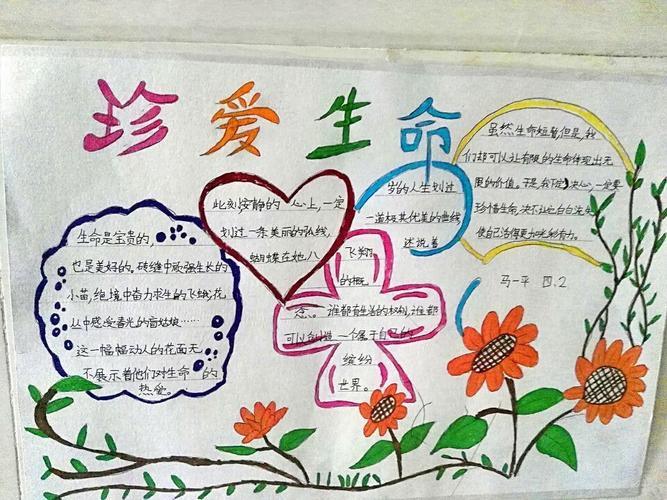 珍爱生命
生命是宝贵的,
也是美好的。砖缝中顽强生长的
小苗,绝境中奋力求生的飞蛾,花
丛中感受春光的盲姑娘……
这一幅幅动人的花面无
不展示着他们对生命的
热爱。
此刻安静的心上,一定
划过一条美丽的弘线,
蝴蝶在她八
岁的人生划过
一道极其优美的曲线
述说着
飞翔
的概
念。谁都有生活的权利,谁都
可以创造一个属于自己的
缤纷
世界。
虽然生命短暂,但是,我
们却可以让有限的生命体现出无
限的价值。于是,我下定决心,一定要
珍惜生命,决不让它白白流失,
使自己活得更加光彩有力。
马一平 四.2